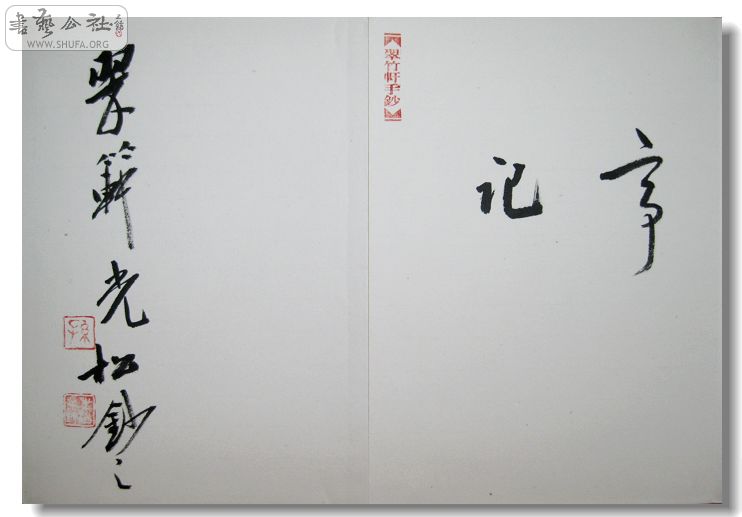 書藝公社
WWW.SHUFA.ORG
翠竹軒手鈔
亭
记
翠竹軒光松鈔之
孫